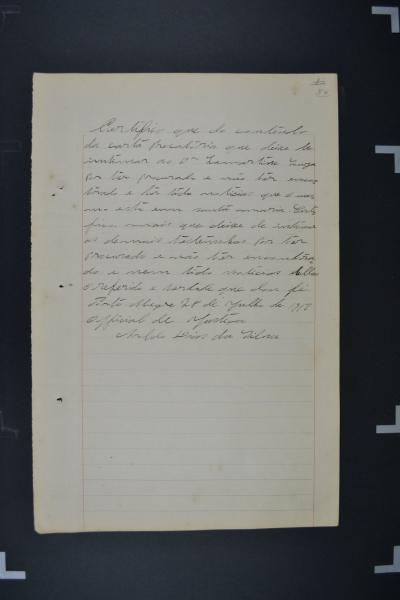 Certifico que do contéudo
da carta precatória que deixe de
intimar ao Dr Lamartine
por ter procurado e não ter encon
trado e ter tido noticias que o mes
mo está em santa maria. Certi
fico mais que deixe de intimar
as demais testemunhas por ter
procurado e não ter encontra
do e nem tido noticias dellas
o referido é verdade que dou fé
Porto Alegre 28 de Julho de
Official de Justiça
da Silva